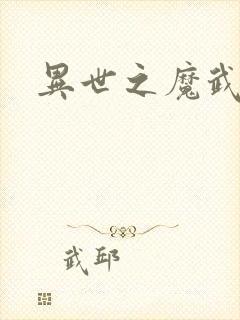 異世之魔武
武邱